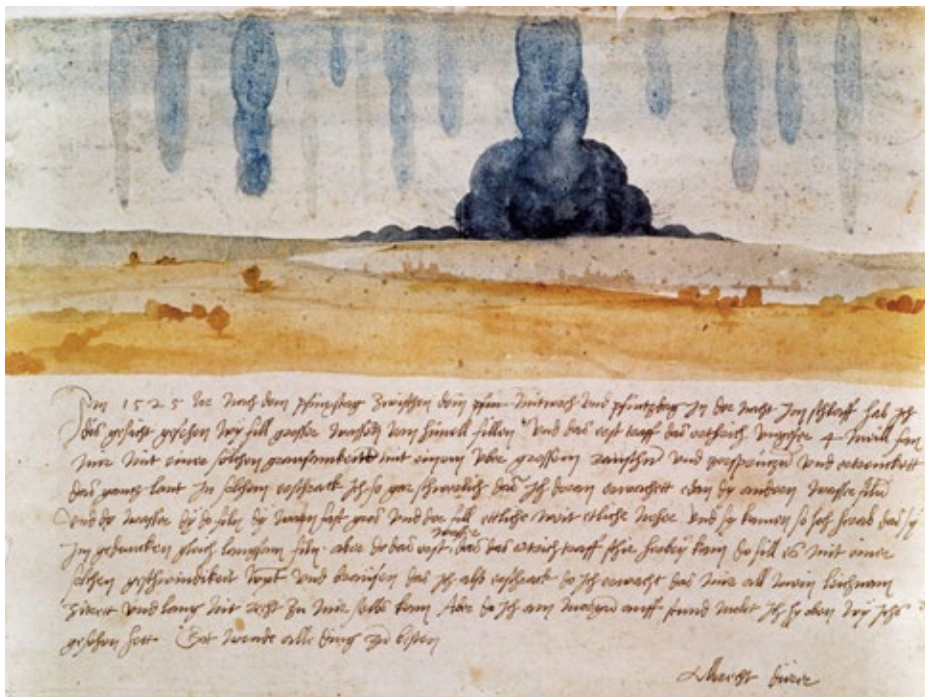 Im 1525 Jor nach dem pfinxstag zwischen dem mitwoch und pfintzdag in der nacht im schlaff hab ich
dis gesicht gesehen wy fill grosser wassern vom himell fillen Und das erst traff das erthrich ungefer 4 meill fan
mir mit einer solchen grausamkeitt mit einem uber grossem raüschn und zersprützn und ertrenckett
das gantz lant In solchem erschrack ich so gar schwerlich das ich doran erwachett e dan dy andern wasser filn
Und dy wasser dy do filn dy warn fast gros und der fill ettliche weit etliche neher und sy kamen so hoch herab das sy
im gedancken gleich langsam filn. aber do das erst wasser das das ertrich traff schir herbey kam do fill es mit einer
solchen geschwindikeit wynt und braüsen das ich also erschrack do ich erwacht das mir all mein leichnam
zitrett und lang nit recht zu mir selbs kam Aber do ich am morgn auff stund molet ich hy oben wy ichs
gesehen hett. Got wende alle ding zu besten
Albrecht dürer